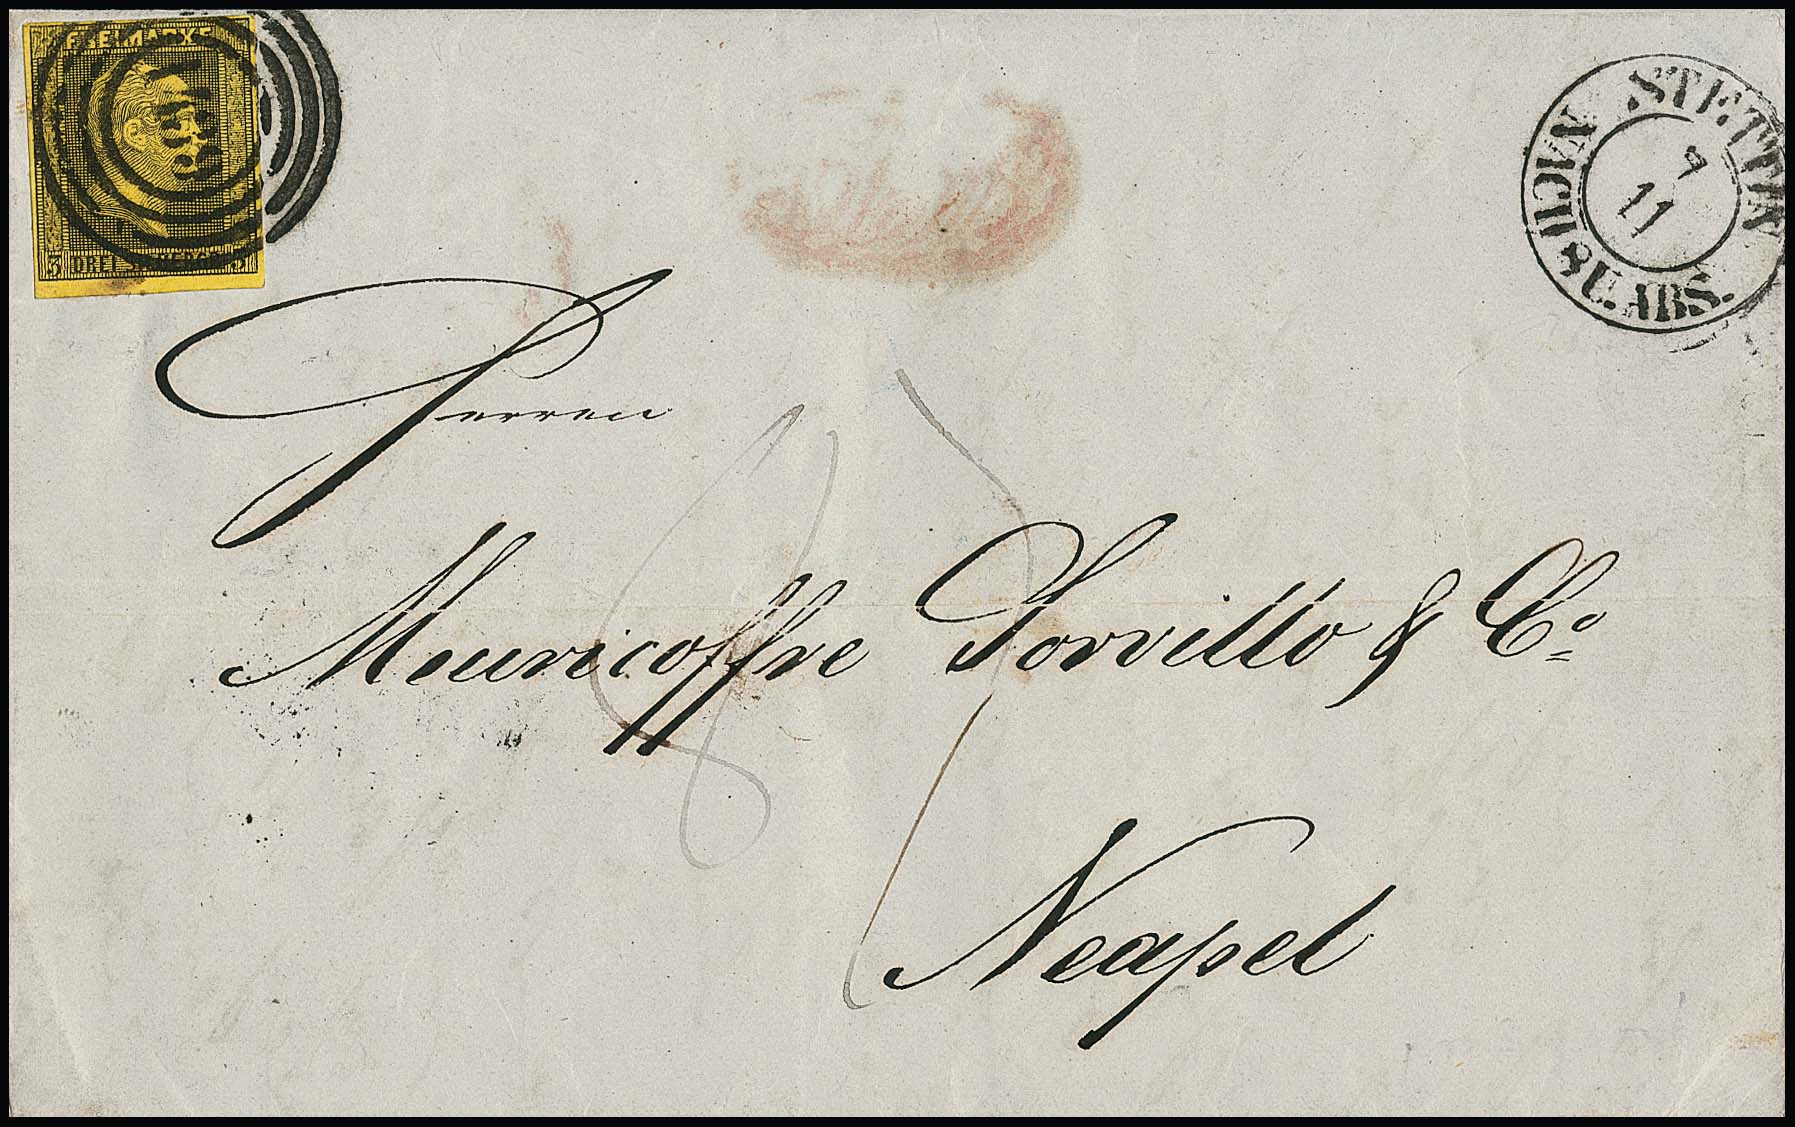 FREIMARKE
3 DREI SILBERGR. 3
STETTIN
7
11
NACH 8 U. ABS.
Herren
Meuricoffre Sorvillo & Co.
Neapel